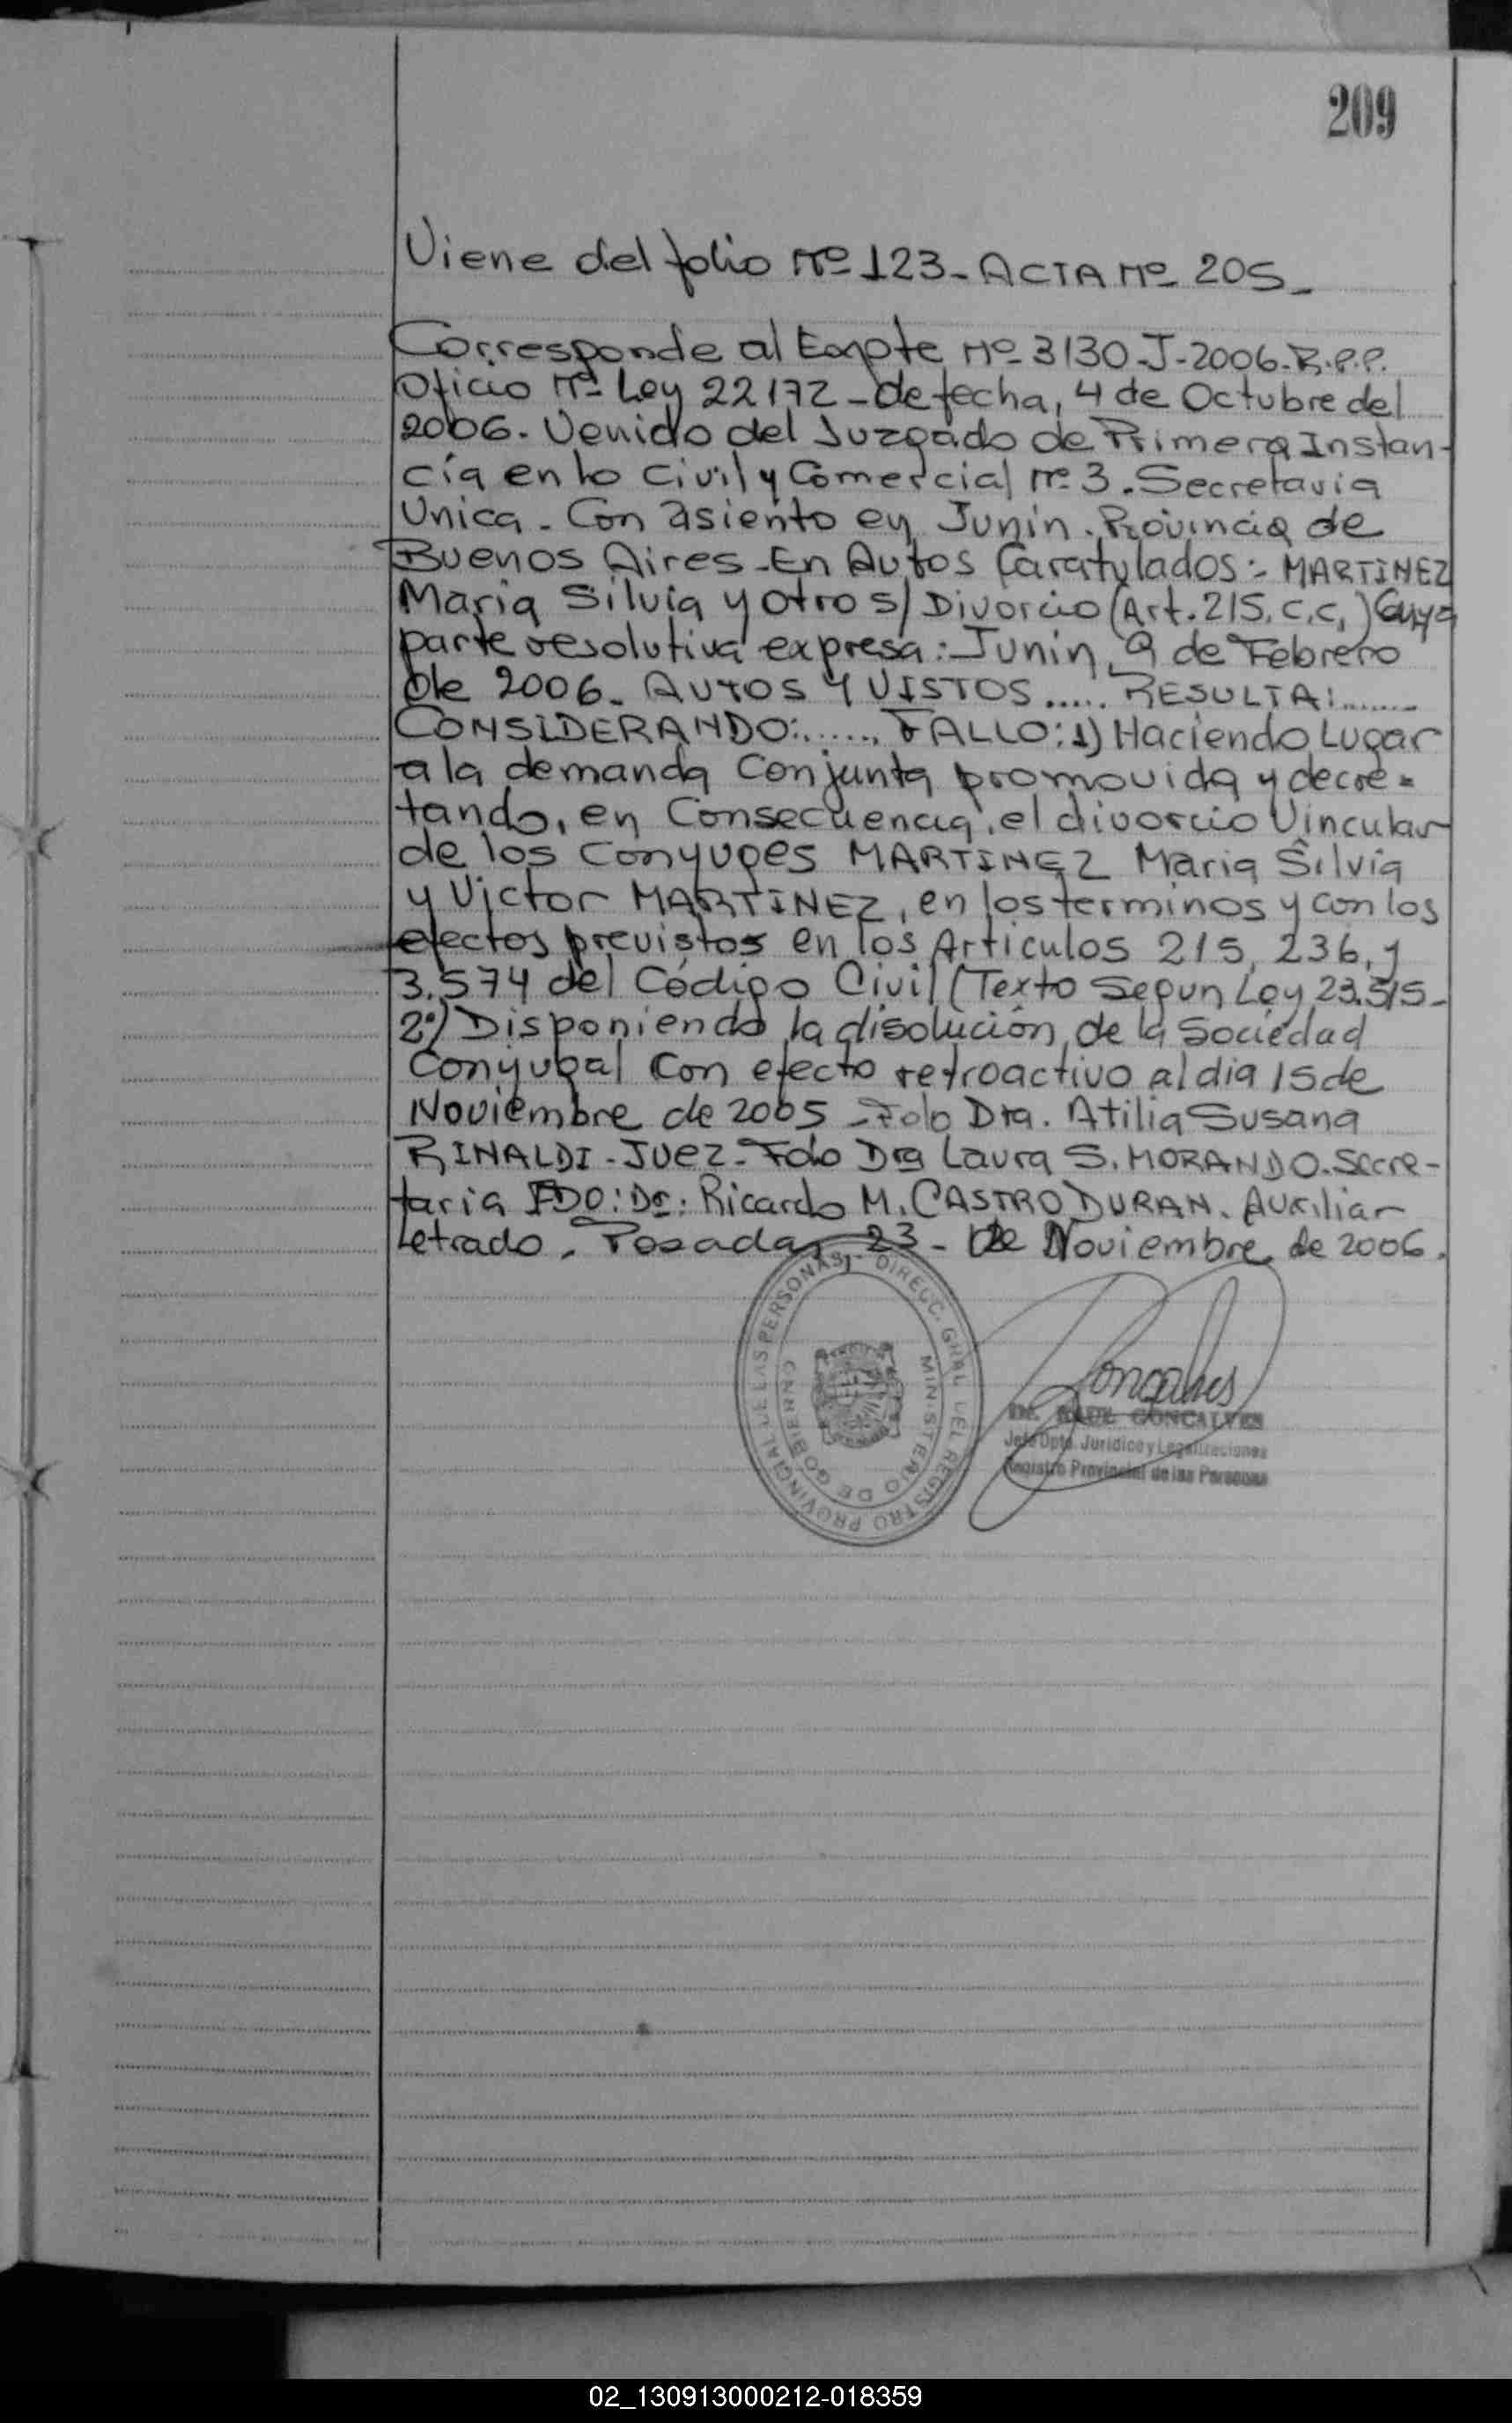 209
Viene del folio Nº 123 - ACTA Nº 205 -
Corresponde al Expte Nº 3130-J-2006-R.P.P.
Oficio Nº Ley 22172 - de fecha, 4 de Octubre del
2006. Venido del Juzgado de Primera Instan-
cia en lo Civil y Comercial Nº 3. Secretaria
Unica - Con asiento en Junin. Provincia de
Buenos Aires - En Autos Caratulados:- MARTINEZ
Maria Silvia y otro s/ Divorcio (Art. 215, C.C,) Cuya
parte resolutiva expresa: Junin, 9 de Febrero
de 2006. AUTOS Y VISTOS ..... RESULTA: .......
CONSIDERANDO: ...... FALLO: 1) Haciendo Lugar
a la demanda Conjunta promovida y decre=
tando, en Consecuencia, el divorcio Vincular
de los Conyuges MARTINEZ Maria Silvia
y Victor MARTINEZ, en los terminos y con los
efectos previstos en los Articulos 215, 236, y
3.574 del Código Civil (Texto Segun Ley 23.515-
2º) Disponiendo la disolución de la Sociedad
Conyugal Con efecto retroactivo al dia 15 de
Noviembre de 2005 - Fdo Dra. Atilia Susana
RINALDI - Juez - Fdo Dra Laura S. MORANDO - Secre-
taria FDO: Dr: Ricardo M. CASTRO DURAN. Auxiliar
Letrado. Posadas, 23 - de Noviembre de 2006.
DIRECC. GRAL DEL REGISTRO PROVINCIAL DE LAS PERSONAS
MINISTERIO DE GOBIERNO
Goncalves
Dr. RAUL GONCALVES
Jefe Dpto. Juridico y Legalizaciones
Registro Provincial de las Personas
02_130913000212-018359